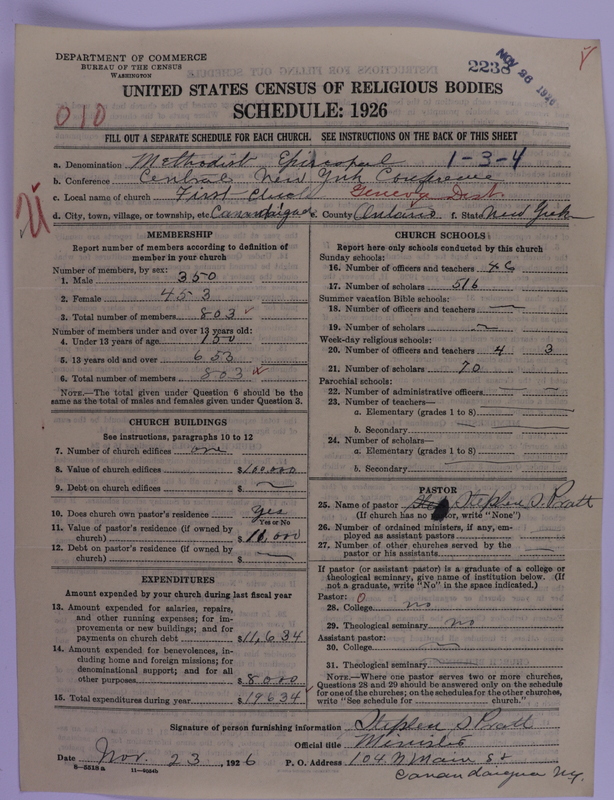 DEPARTMENT OF COMMERCE
BUREAU OF THE CENSUS
WASHINGTON
2238
NOV 26 1926
UNITED STATES CENSUS OF RELIGIOUS BODIES
SCHEDULE: 1926
010
FILL OUT A SEPARATE SCHEDULE FOR EACH CHURCH. SEE INSTRUCTIONS ON THE BACK OF THIS SHEET
a. Denomination Methodist Episcopal 1-3-4
b. Conference Central New York Conference
c. Local name of church First Church Geneva Dist.
d. City, town, village, or township, etc. Canandaigua e. County Ontario f. State New York
MEMBERSHIP
Report number of members according to definition of
member in your church
Number of members, by sex:
1. Male 350
2. Female 453
3. Total number of members 803
Number of members under and over 13 years old:
4. Under 13 years of age 150
5. 13 years old and over 653
6. Total number of members 803
NOTE.—The total given under Question 6 should be
the same as the total of males and females given under Question 3.
CHURCH BUILDINGS
See instructions, paragraphs 10 to 12
7. Number of church edifices one
8. Value of church edifices $100,000
9. Debt on church edifices $
10. Does church own pastor's residence Yes
Yes or No
11. Value of pastor's residence (if owned by
church) $11,000
12. Debt on pastor's residence (if owned by
church) $
EXPENDITURES
Amount expended by your church during last fiscal year
13. Amount expended for salaries, repairs,
and other running expenses; for im-
provements or new buildings; and for
payments on church debt $11,634
14. Amount expended for benevolences, in-
cluding home and foreign missions; for
denominational support; and for all
other purposes $8000
15. Total expenditures during year $19634
CHURCH SCHOOLS
Report here only schools conducted by this church
Sunday schools:
16. Number of officers and teachers 46
17. Number of scholars 516
Summer vacation Bible schools:
18. Number of officers and teachers
19. Number of scholars
Week-day religious schools:
20. Number of officers and teachers 4 3
21. Number of scholars 70
Parochial schools:
22. Number of administrative officers
23. Number of teachers—
a. Elementary (grades 1 to 8)
b. Secondary
24. Number of scholars—
a. Elementary (grades 1 to 8)
b. Secondary
PASTOR
25. Name of pastor Stephen S. Pratt
(If church has no pastor, write "None")
26. Number of ordained ministers, if any, em-
ployed as assistant pastors
27. Number of other churches served by the
pastor or his assistants
If pastor (or assistant pastor) is a graduate of a college or
theological seminary, give name of institution below. (If
not a graduate, write "No" in the space indicated.)
Pastor: 0
28. College no
29. Theological seminary no
Assistant pastor:
30. College
31. Theological seminary
NOTE.—Where one pastor serves two or more churches,
Questions 28 and 29 should be answered only on the schedule
for one of the churches; on the schedules for the other churches,
write "See schedule for church."
Signature of person furnishing information Stephen S Pratt
Official title Minister
Date Nov. 23, 1926 P. O. Address 104 N Main St
8-5518a 11-9054b
Canandaigua Ny.